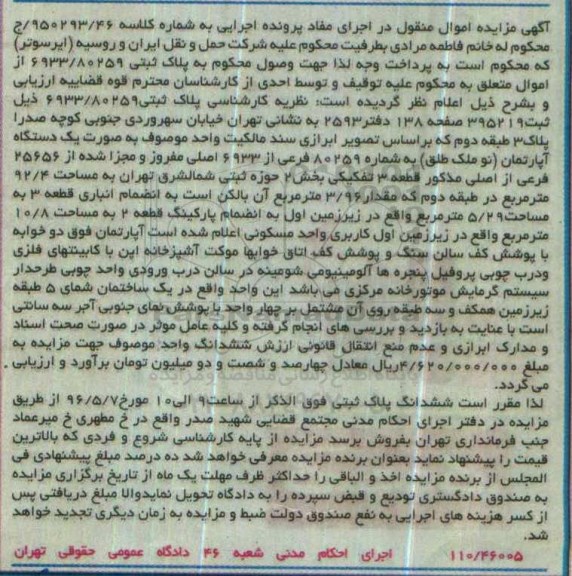 آگهی مزایده اموال منقول در اجرای مفاد پرونده اجرایی به شماره کلاسه ۹۵۰۲۹۳/۴۶/ج
محکوم له خانم فاطمه مرادی بطرفیت محکوم علیه شرکت حمل و نقل ایران و روسیه (ایرسوتر)
که محکوم است به پرداخت وجه لذا جهت وصول محکوم به پلاک ثبتی ۶۹۳۳/۸۰۲۵۹ از
اموال متعلق به محکوم علیه توقیف و توسط احدی از کارشناسان محترم قوه قضاییه ارزیابی
و بشرح ذیل اعلام نظر گردیده است: نظریه کارشناسی پلاک ثبتی ۶۹۳۳/۸۰۲۵۹ ذیل
ثبت ۳۹۵۲۱۹ صفحه ۱۳۸ دفتر ۲۵۹۳ به نشانی تهران خیابان سهروردی جنوبی کوچه صدرا
پلاک ۳ طبقه دوم که براساس تصویر ابرازی سند مالکیت واحد موصوف به صورت یک دستگاه
آپارتمان (نو ملک طلق) به شماره ۸۰۲۵۹ فرعی از ۶۹۳۳ اصلی مفروز و مجزا شده از ۲۵۶۵۶
فرعی از اصلی مذکور قطعه ۳ تفکیکی بخش ۲ حوزه ثبتی شمالشرق تهران به مساحت ۹۲/۴
مترمربع در طبقه دوم که مقدار ۳/۹۶ مترمربع آن بالکن است به انضمام انباری قطعه ۳ به
مساحت ۵/۲۹ مترمربع واقع در زیرزمین اول به انضمام پارکینگ قطعه ۲ به مساحت ۱۰/۸
مترمربع واقع در زیرزمین اول کاربری واحد مسکونی اعلام شده است آپارتمان فوق دو خوابه
با پوشش کف سالن سنگ و پوشش کف اتاق خوابها موکت آشپزخانه اپن با کابینتهای فلزی
ودرب چوبی پروفیل پنجره ها آلومینیومی شومینه در سالن درب ورودی واحد چوبی طرحدار
سیستم گرمایش موتورخانه مرکزی می باشد این واحد واقع در یک ساختمان شمای ۵ طبقه
زیرزمین همکف و سه طبقه روی آن مشتمل بر چهار واحد با پوشش نمای جنوبی آجر سه سانتی
است با عنایت به بازدید و بررسی های انجام گرفته و کلیه عامل موثر در صورت صحت اسناد
و مدارک ابرازی و عدم منع انتقال قانونی ارزش ششدانگ واحد موصوف جهت مزایده به
مبلغ ۴/۶۲۰/۰۰۰/۰۰۰ ریال معادل چهارصد و شصت و دو میلیون تومان برآورد و ارزیابی
می گردد.
لذا مقرر است ششدانگ پلاک ثبتی فوق الذکر از ساعت ۹ الی ۱۰ مورخ ۹۶/۵/۷ از طریق
مزایده در دفتر اجرای احکام مدنی مجتمع قضایی شهید صدر واقع در خ مطهری خ میرعماد
جنب فرمانداری تهران بفروش برسد مزایده از پایه کارشناسی شروع و فردی که بالاترین
قیمت را پیشنهاد نماید بعنوان برنده مزایده معرفی خواهد شد ده درصد مبلغ پیشنهادی فی
المجلس از برنده مزایده اخذ و الباقی را حداکثر ظرف مهلت یک ماه از تاریخ برگزاری مزایده
به صندوق دادگستری تودیع و قبض سپرده را به دادگاه تحویل نماید والا مبلغ دریافتی پس
از کسر هزینه های اجرایی به نفع صندوق دولت ضبط و مزایده به زمان دیگری تجدید خواهد
شد.
۱۱۰/۴۶۰۰۵ اجرای احکام مدنی شعبه ۴۶ دادگاه عمومی حقوقی تهران